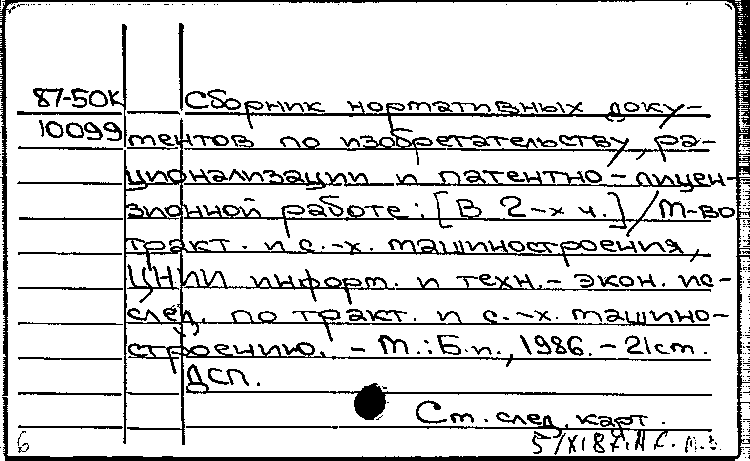 87-50К Сборник нормативных доку-
10099 ментов по изобретательству, ра-
ционализации и патентно-лицен-
зионной работе: [В 2-х ч.] / М-во
тракт. и с.-х. машиностроения,
ЦНИИ информ. и техн.-экон. ис-
след. по тракт. и с.-х. машино-
строению. - М.: Б.и., 1986. - 21см.
ДСП.
См. след. карт.
6